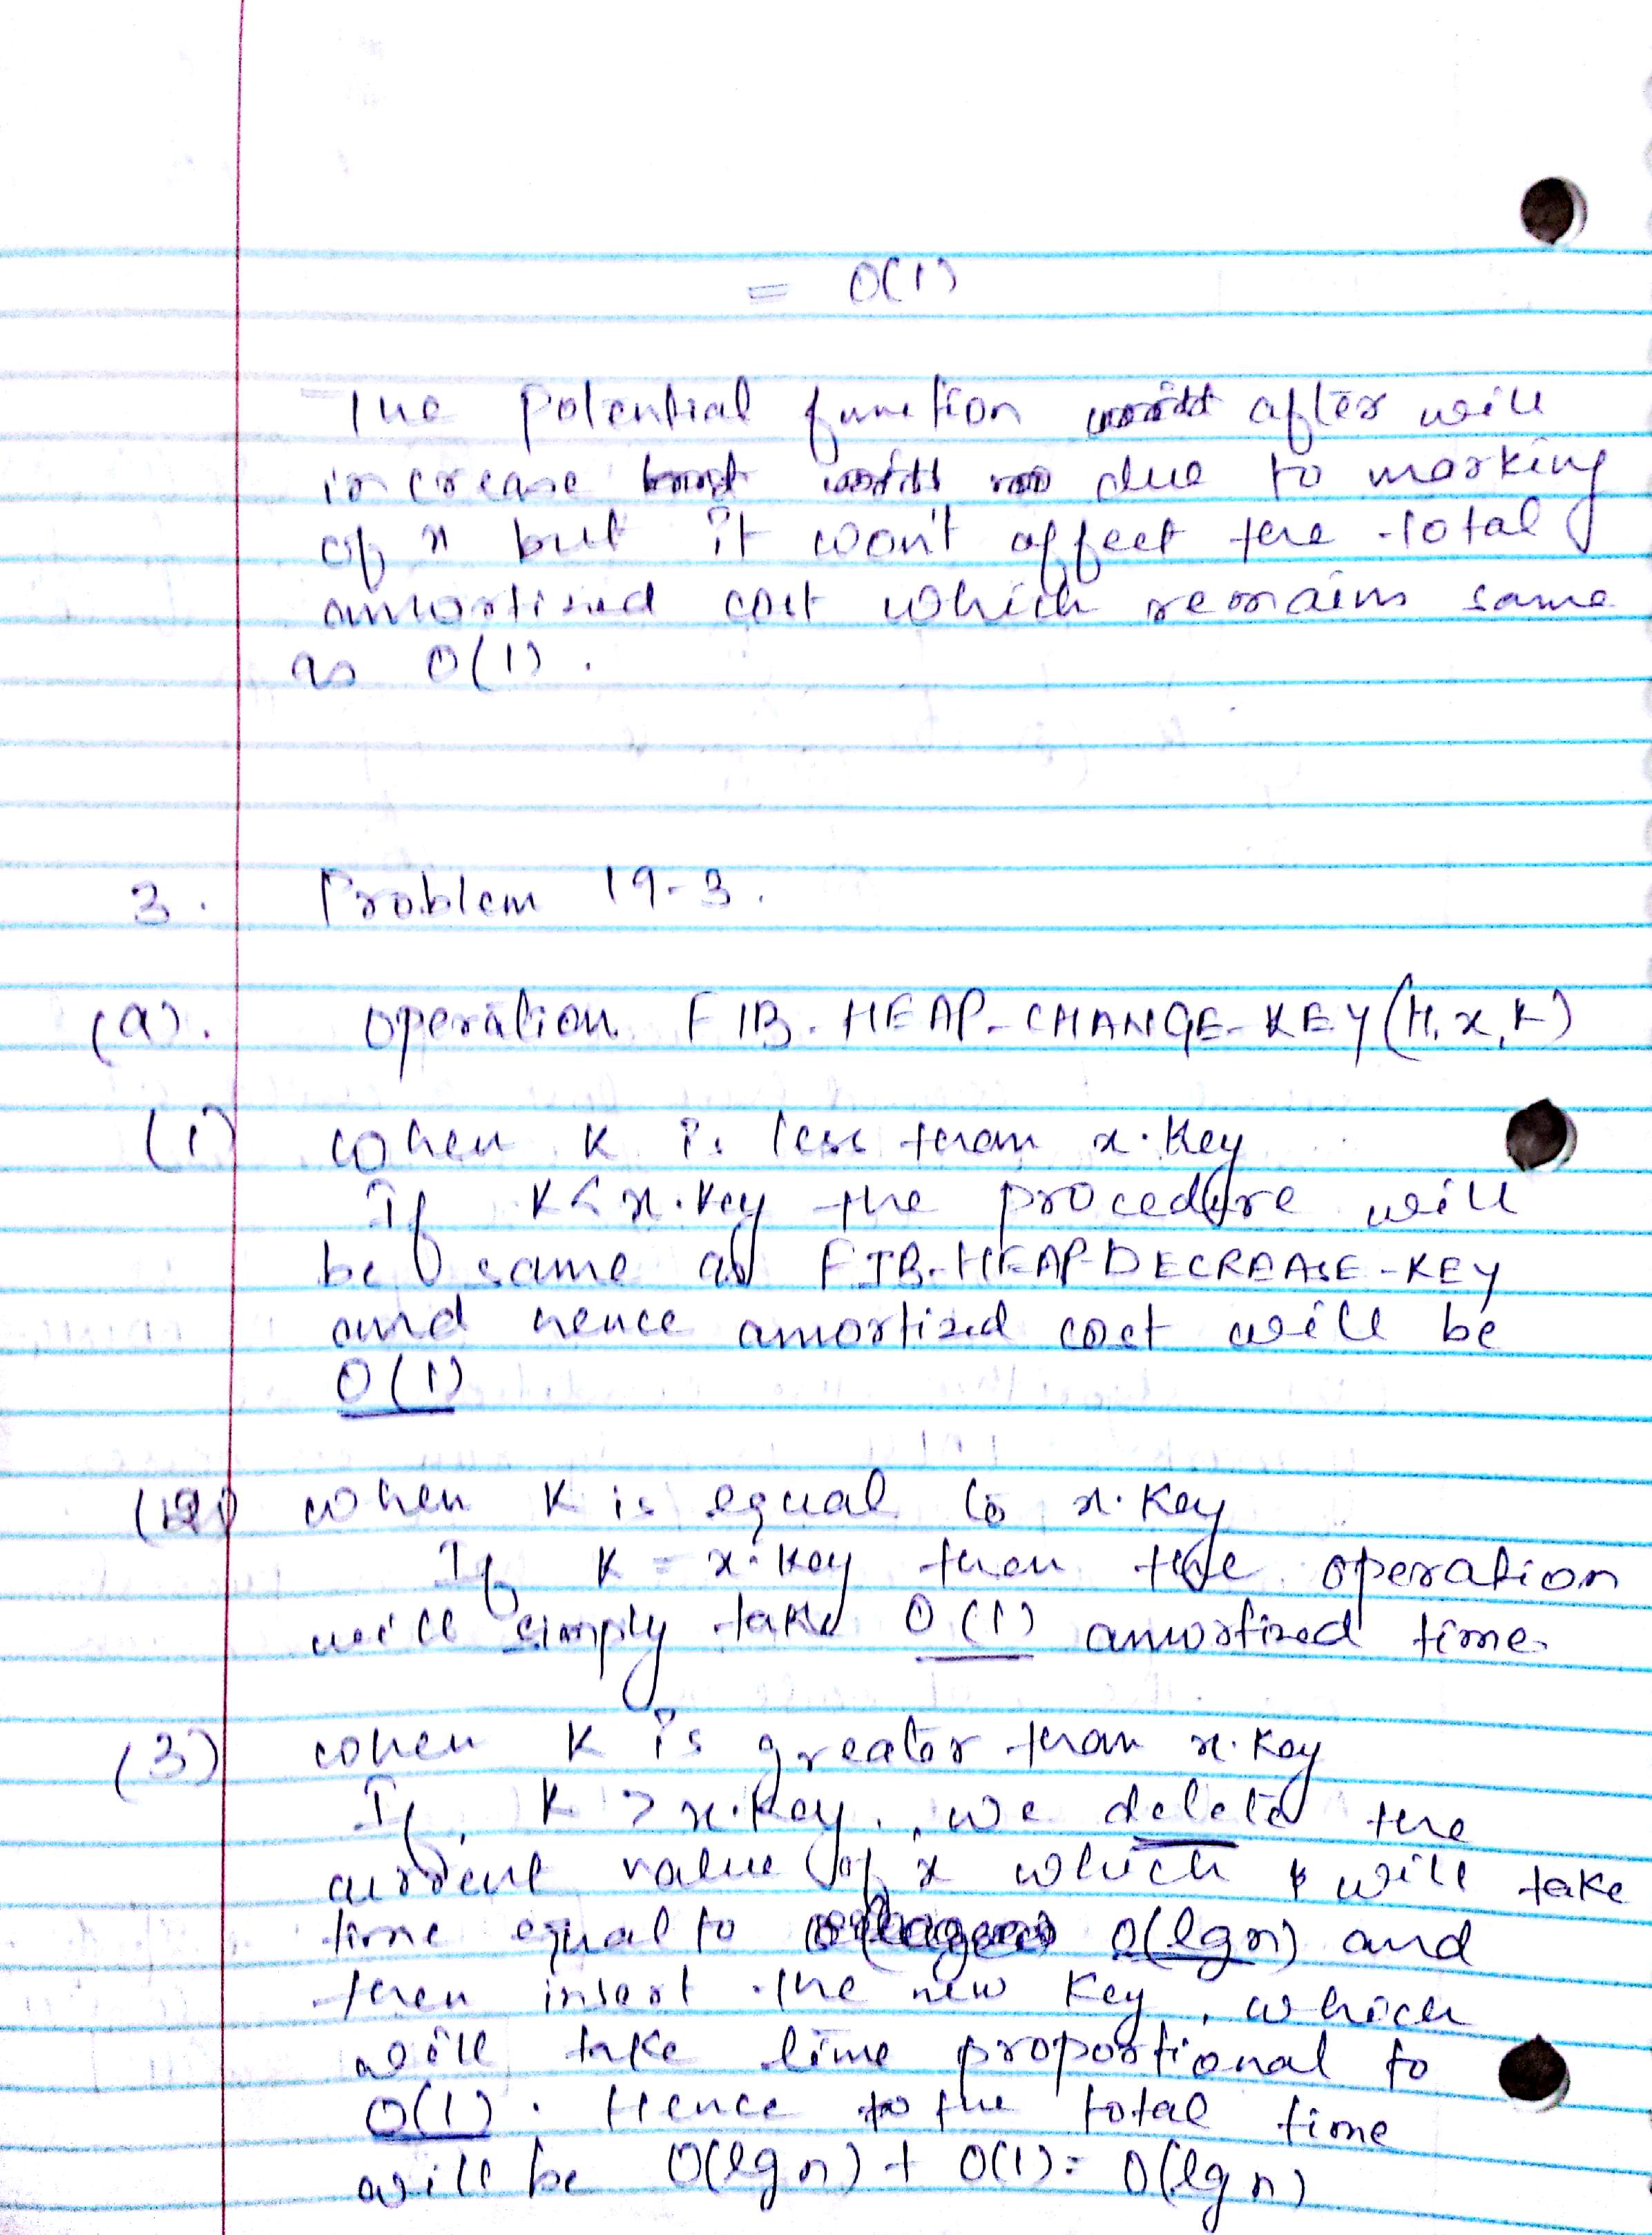 = O(1)
The potential function after will
increase due to marking
of x but it won't affect the total
amortized cost which remains same
as O(1).
3. Problem 19-3.
(a). Operation FIB-HEAP-CHANGE-KEY(H,x,K)
(1) when K is less than x.key
If K<x.key the procedure will
be same as FIB-HEAP-DECREASE-KEY
and hence amortized cost will be
O(1)
(2) when K is equal to x.key
If K = x.key then the operation
will simply take O(1) amortized time.
(3) when K is greater than x.key
If K > x.key, we delete the
current value of x which will take
time equal to O(lgn) and
then insert the new key, which
will take time proportional to
O(1). Hence the total time
will be O(lgn) + O(1) = O(lgn)